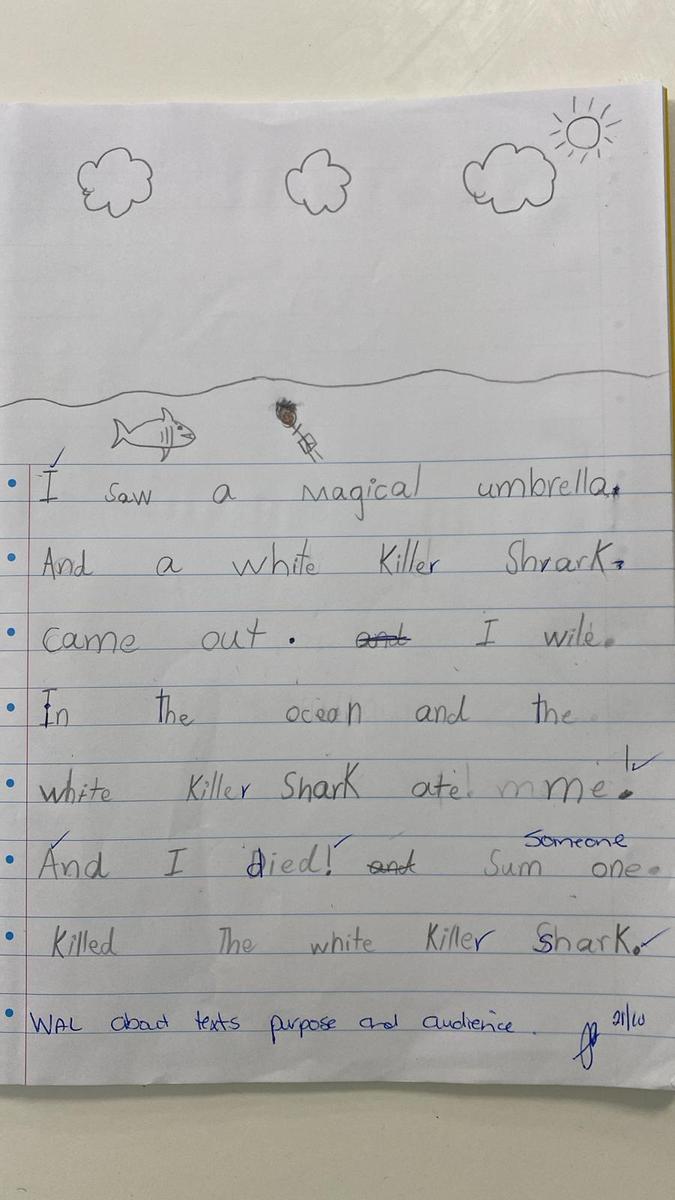 I saw a magical umbrella.
And a white Killer Shrark.
came out. and I wile.
In the ocean and the
white Killer Shark ate mme.
Someone
And I Died! and Sum one.
Killed The white Killer Shark.
WAL about texts purpose and audience.
21/10